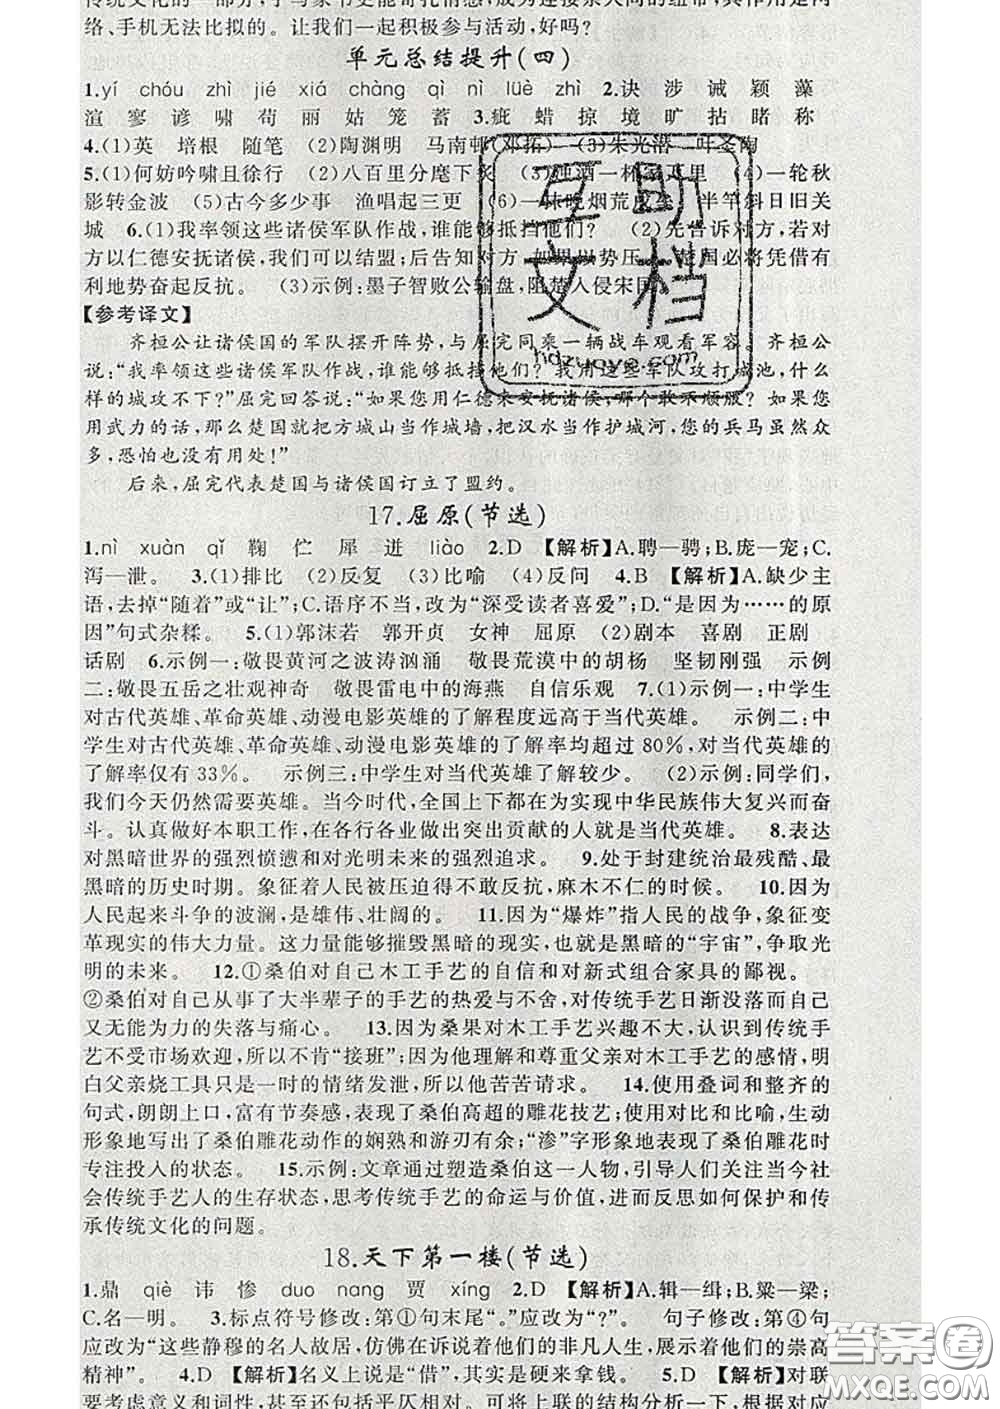 络、手机无法比拟的。让我们一起积极参与活动,好吗?
单元总结提升(四)
1.yí chóu zhì jié xiá chàng qì nì lüè zhì 2.诀 涉 诫 颖 藻
渲 寥 谚 啸 苟 丽 姑 笼 蓄 3.疵 蜡 掠 境 旷 拈 睹 称
4.(1)英 培根 随笔 (2)陶渊明 马南邨(邓拓) (3)朱光潜 叶圣陶
5.(1)何妨吟啸且徐行 (2)八百里分麾下炙 (3)浊酒一杯家万里 (4)一轮秋
影转金波 (5)古今多少事 渔唱起三更 (6)一抹晚烟荒戍垒 半竿斜日旧关
城 6.(1)我率领这些诸侯军队作战,谁能够抵挡他们? (2)先告诉对方,若对
方以仁德安抚诸侯,我们可以结盟;后告知对方,如果以势压人,楚国必将凭借有
利地势奋起反抗。 (3)示例:墨子智败公输盘,阻楚人侵宋国。
【参考译文】
齐桓公让诸侯国的军队摆开阵势,与屈完同乘一辆战车观看军容。齐桓公
说:“我率领这些诸侯军队作战,谁能够抵挡他们?我用这些军队攻打城池,什么
样的城攻不下?”屈完回答说:“如果您用仁德来安抚诸侯,哪个敢不顺服?如果您
用武力的话,那么楚国就把方城山当作城墙,把汉水当作护城河,您的兵马虽然众
多,恐怕也没有用处!”
后来,屈完代表楚国与诸侯国订立了盟约。
17.屈原(节选)
1.nì xuàn qǐ 鞠 伫 犀 迸 liào 2.D 【解析】A.聘—骋;B.庞—宠;C.
泻—泄。 3.(1)排比 (2)反复 (3)比喻 (4)反问 4.B 【解析】A.缺少主
语,去掉“随着”或“让”;C.语序不当,改为“深受读者喜爱”;D.“是因为……的原
因”句式杂糅。 5.(1)郭沫若 郭开贞 女神 屈原 (2)剧本 喜剧 正剧
话剧 6.示例一:敬畏黄河之波涛汹涌 敬畏荒漠中的胡杨 坚韧刚强 示例
二:敬畏五岳之壮观神奇 敬畏雷电中的海燕 自信乐观 7.(1)示例一:中学生
对古代英雄、革命英雄、动漫电影英雄的了解程度远高于当代英雄。 示例二:中
学生对古代英雄、革命英雄、动漫电影英雄的了解率均超过80%,对当代英雄的了
了解率仅有33%。 示例三:中学生对当代英雄了解较少。 (2)示例:同学们,
我们今天仍然需要英雄。当今时代,全国上下都在为实现中华民族伟大复兴而奋
斗。认真做好本职工作,在各行各业做出突出贡献的人就是当代英雄。 8.表达
对黑暗世界的强烈愤懑和对光明未来的强烈追求。 9.处于封建统治最残酷、最
黑暗的历史时期。象征着人民被压迫得不敢反抗,麻木不仁的时候。 10.因为
人民起来斗争的波澜,是雄伟、壮阔的。 11.因为“爆炸”指人民的战争,象征变
革现实的伟大力量。这力量能够摧毁黑暗的现实,也就是黑暗的“宇宙”,争取光
明的未来。 12.①桑伯对自己木工手艺的自信和对新式组合家具的鄙视。
②桑伯对自己从事了大半辈子的手艺的热爱与不舍,对传统手艺日渐没落而自己
又无能为力的失落与痛心。 13.因为桑果对木工手艺兴趣不大,认识到传统手
艺不受市场欢迎,所以不肯“接班”;因为他理解和尊重父亲对木工手艺的感情,明
白父亲烧工具只是一时的情绪发泄,所以他苦苦请求。 14.使用叠词和整齐的
句式,朗朗上口,富有节奏感,表现了桑伯高超的雕花技艺;使用对比和比喻,生动
形象地写出了桑伯雕花动作的娴熟和游刃有余;“渗”字形象地表现了桑伯雕花时
专注投入的状态。 15.示例:文章通过塑造桑伯这一人物,引导人们关注当今社
会传统手艺人的生存状态,思考传统手艺的命运与价值,进而反思如何保护和传
承传统文化的问题。
18.天下第一楼(节选)
1.鼎 qiè 讳 惨 duo nang 贾 xíng 2.D 【解析】A.辑—缉;B.粱—梁;
C.名—明。 3.标点符号修改:第①句末尾“。”应改为“?”。 句子修改:第④句
应改为“这些静穆的名人故居,仿佛在诉说着他们的非凡人生,展示着他们的崇高
精神”。 4.D 【解析】名义上说是“借”,其实是硬来拿钱。 5.D 【解析】对联
要考虑意义和词性,还要包括平仄相对。可将上联的结构分析一下,根据对应
互助
文档
hdzuoye.com
答案圈
MXQE.COM